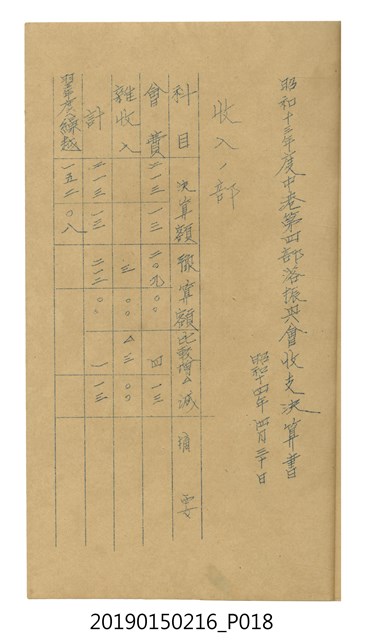 昭和十三年度中港第四部落振興會收支決算書
昭和十四年四月三十日
收入ノ部
科目 決算額 豫算額 比較增△減 摘要
會費 二一三 一三 二〇九 〇〇 四 一三
雜收入 三 〇〇 △三 〇〇
計 二一三 一三 二一二 〇〇 一 一三
翌年度繰越 一五二 〇八
20190150216_P018